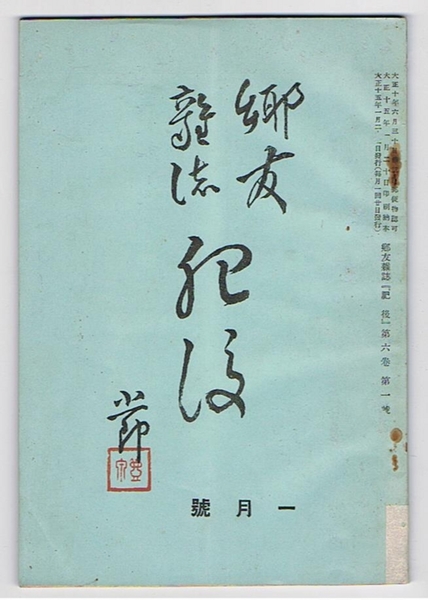 大正十年六月三十日第三種郵便物認可
大正十五年一月二十日印刷納本
大正十五年一月二十一日發行(毎月一回廿日發行)
郷友雜誌『肥後』第六卷 第一號
郷友
雜誌
肥後
一月號